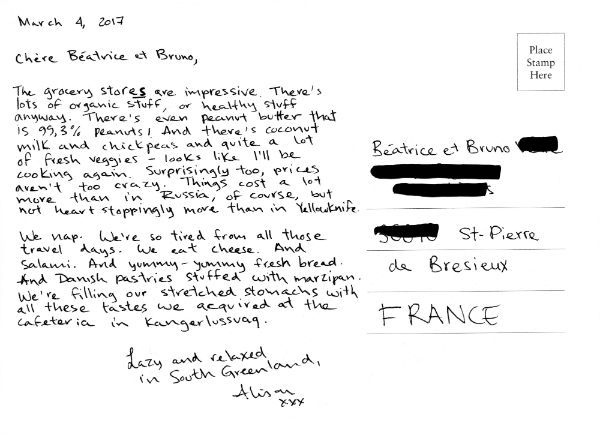 March 4, 2017
Chère Béatrice et Bruno,
The grocery stores are impressive. There's
lots of organic stuff, or healthy stuff
anyway. There's even peanut butter that
is 99,3% peanuts! And there's coconut
milk and chickpeas and quite a lot
of fresh veggies – looks like I'll be
cooking again. Surprisingly too, prices
aren't too crazy. Things cost a lot
more than in Russia, of course, but
not heart stoppingly more than in Yellowknife.
We nap. We're so tired from all those
travel days. We eat cheese. And
salami. And yummy-yummy fresh bread.
And Danish pastries stuffed with marzipan.
We're filling our stretched stomachs with
all these tastes we acquired at the
cafeteria in Kangerlussuaq.
Lazy and relaxed
in South Greenland,
Alison
xxx
Place
Stamp
Here
Béatrice et Bruno
St-Pierre
de Bresieux
FRANCE